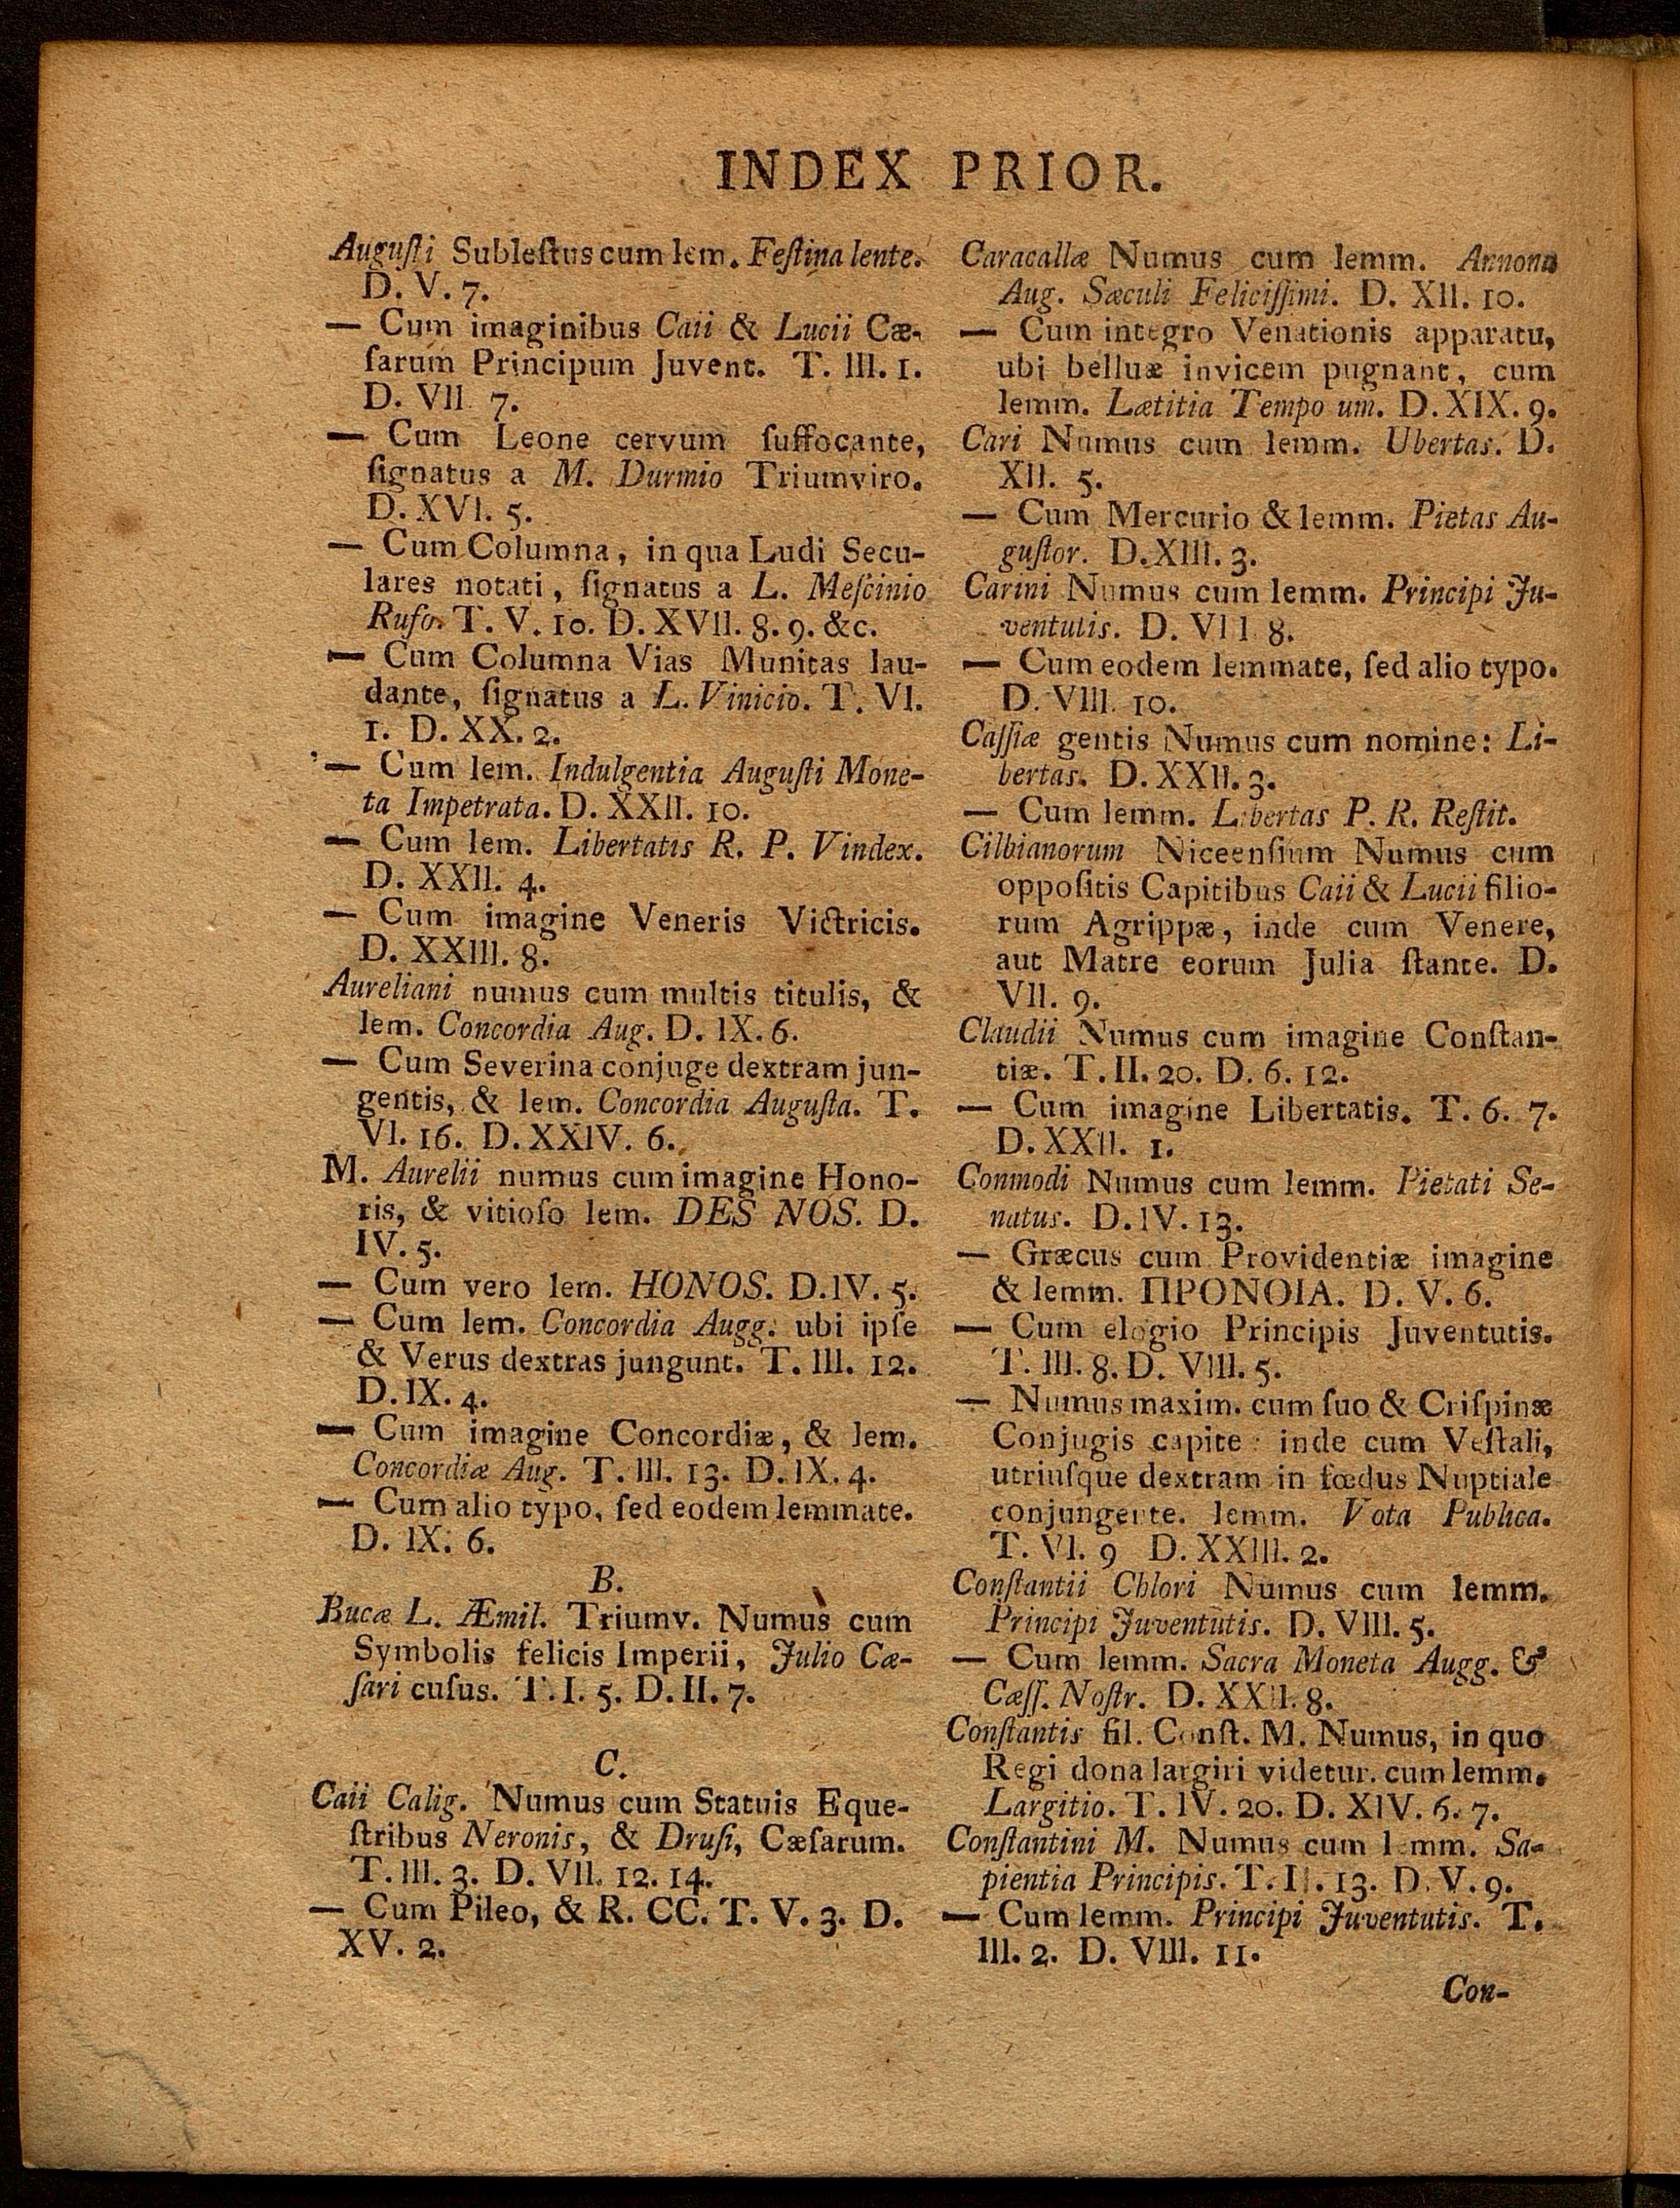 INDEX PRIOR.
Auguſti Subleſtus cum lem. Feſtina lente.
D. V. 7.
— Cum imaginibus Caii & Lucii Cæ-
ſarum Principum Juvent. T. III. 1.
D. VII 7.
— Cum Leone cervum ſuffocante,
ſignatus a M. Durmio Triumviro.
D. XVI. 5.
— Cum Columna, in qua Ludi Secu-
lares notati, ſignatus a L. Meſcinio
Rufo. T. V. 10. D. XVII. 8. 9. &c.
— Cum Columna Vias Munitas lau-
dante, ſignatus a L. Vinicio. T. VI.
1. D. XX. 2.
— Cum lem. Indulgentia Auguſti Mone-
ta Impetrata. D. XXII. 10.
— Cum lem. Libertatis R. P. Vindex.
D. XXII. 4.
— Cum imagine Veneris Victricis.
D. XXIII. 8.
Aureliani numus cum multis titulis, &
lem. Concordia Aug. D. IX. 6.
— Cum Severina conjuge dextram jun-
gentis, & lem. Concordia Auguſta. T.
VI. 16. D. XXIV. 6.
M. Aurelii numus cum imagine Hono-
ris, & vitioſo lem. DES NOS. D.
IV. 5.
— Cum vero lem. HONOS. D. IV. 5.
— Cum lem. Concordia Augg. ubi ipſe
& Verus dextras jungunt. T. III. 12.
D. IX. 4.
— Cum imagine Concordiæ, & lem.
Concordiæ Aug. T. III. 13. D. IX. 4.
— Cum alio typo, ſed eodem lemmate.
D. IX. 6.
B.
Bucæ L. Æmil. Triumv. Numus cum
Symbolis felicis Imperii, Julio Cæ-
ſari cuſus. T. I. 5. D. II. 7.
C.
Caii Calig. Numus cum Statuis Eque-
ſtribus Neronis, & Druſi, Cæſarum.
T. III. 3. D. VII. 12. 14.
— Cum Pileo, & R. CC. T. V. 3. D.
XV. 2.
Caracallæ Numus cum lemm. Annona
Aug. Sæculi Feliciſſimi. D. XII. 10.
— Cum integro Venationis apparatu,
ubi belluæ invicem pugnant, cum
lemm. Lætitia Tempo um. D. XIX. 9.
Cari Numus cum lemm. Ubertas. D.
XII. 5.
— Cum Mercurio & lemm. Pietas Au-
guſtor. D. XIII. 3.
Carini Numus cum lemm. Principi Ju-
ventutis. D. VII 8.
— Cum eodem lemmate, ſed alio typo.
D. VIII. 10.
Caſſiæ gentis Numus cum nomine: Li-
bertas. D. XXII. 3.
— Cum lemm. Libertas P. R. Reſtit.
Cilbianorum Niceenſium Numus cum
oppoſitis Capitibus Caii & Lucii filio-
rum Agrippæ, inde cum Venere,
aut Matre eorum Julia ſtante. D.
VII. 9.
Claudii Numus cum imagine Conſtan-
tiæ. T. II. 20. D. 6. 12.
— Cum imagine Libertatis. T. 6. 7.
D. XXII. 1.
Conmodi Numus cum lemm. Pietati Se-
natus. D. IV. 13.
— Græcus cum Providentiæ imagine
& lemm. ΠΡΟΝΟΙΑ. D. V. 6.
— Cum elogio Principis Juventutis.
T. III. 8. D. VIII. 5.
— Numus maxim. cum ſuo & Criſpinæ
Conjugis capite : inde cum Veſtali,
utriuſque dextram in fœdus Nuptiale
conjungente. lemm. Vota Publica.
T. VI. 9 D. XXIII. 2.
Conſtantii Chlori Numus cum lemm.
Principi Juventutis. D. VIII. 5.
— Cum lemm. Sacra Moneta Augg. &
Cæſſ. Noſtr. D. XXII. 8.
Conſtantis fil. Conſt. M. Numus, in quo
Regi dona largiri videtur. cum lemm.
Largitio. T. IV. 20. D. XIV. 6. 7.
Conſtantini M. Numus cum lemm. Sa-
pientia Principis. T. II. 13. D. V. 9.
— Cum lemm. Principi Juventutis. T.
III. 2. D. VIII. 11.
Con-